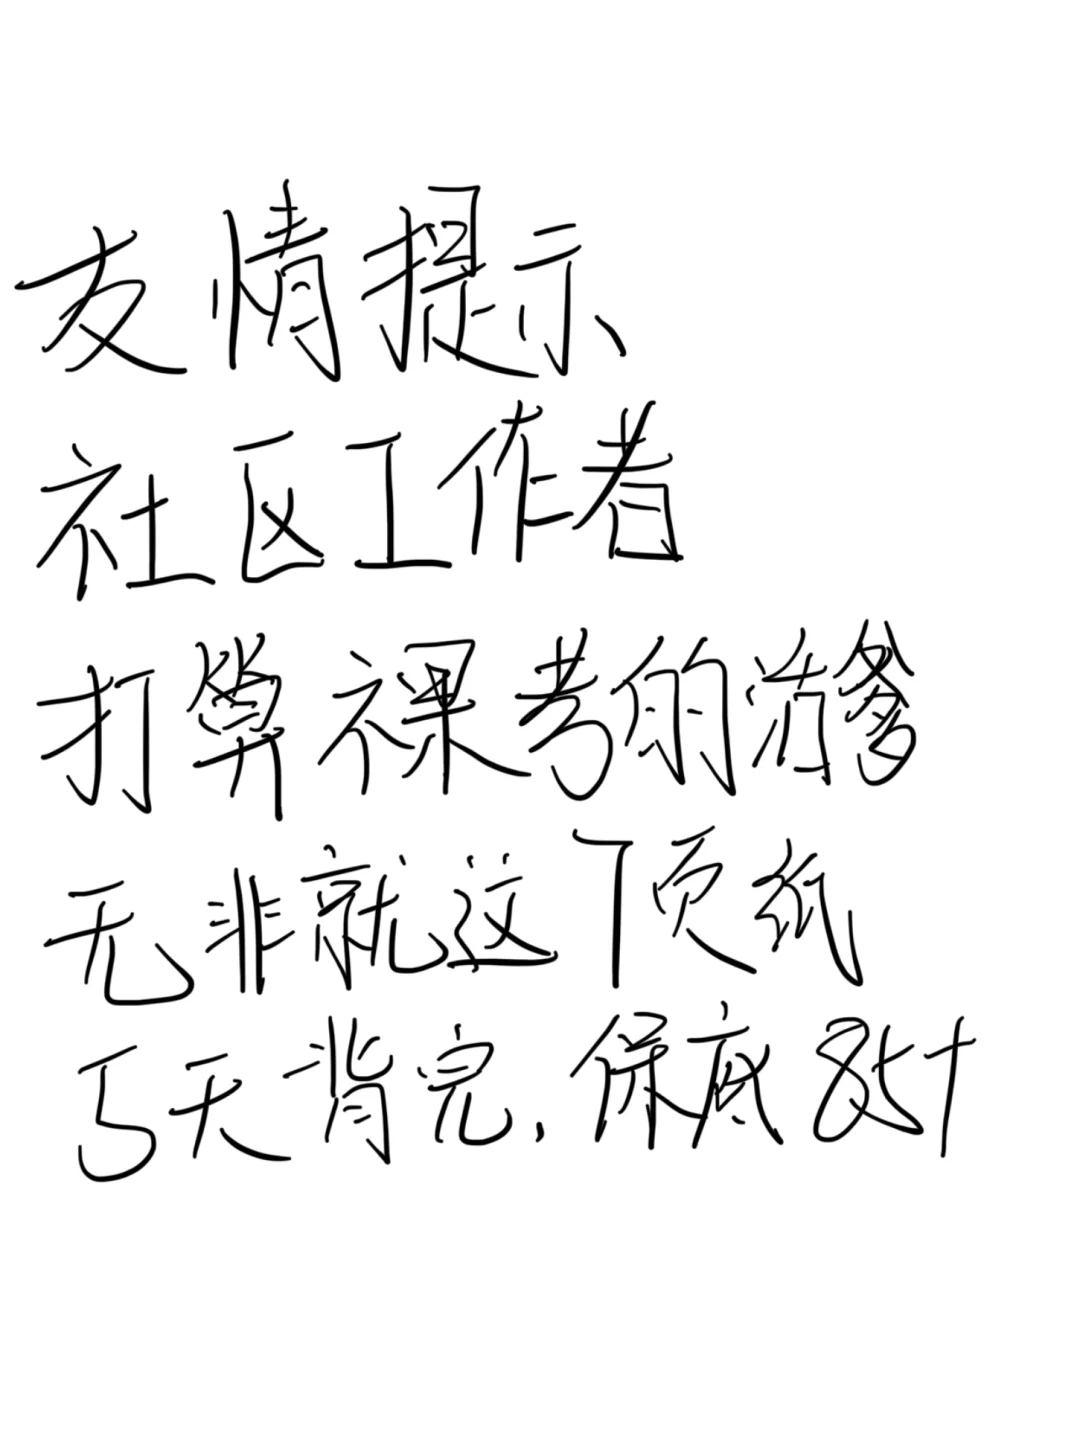 友情提示
社区工作者
打算裸考的活爹
无非就这7页纸
5天背完,保底85+